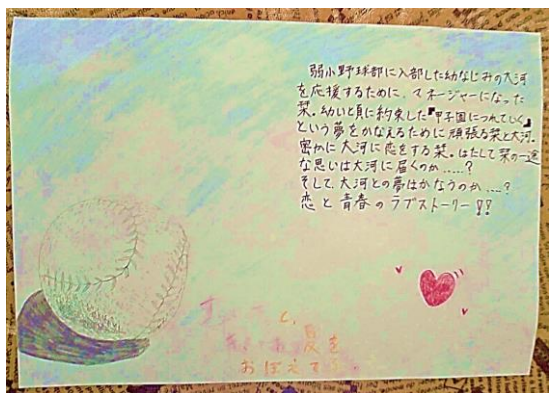 弱小野球部に入部した幼なじみの大河
を応援するために、マネージャーになった
栞。幼い頃に約束した『甲子園につれていく』
という夢をかなえるために頑張る栞と大河。
密かに大河に恋をする栞。はたして栞の一途
な思いは大河に届くのか……?
そして、大河との夢はかなうのか……?
恋と青春のラブストーリー!!
夏を
おぼえて